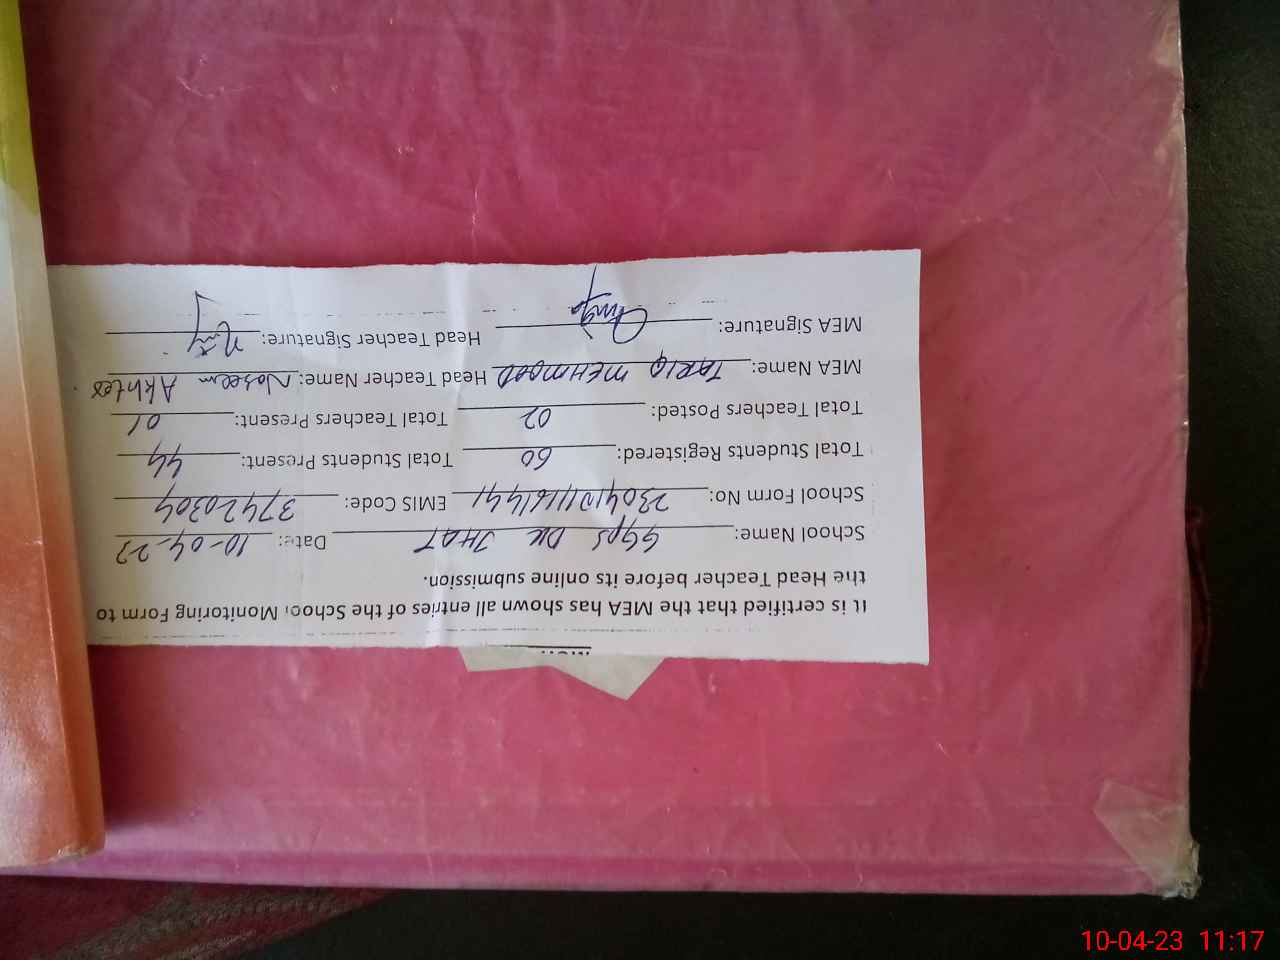 It is certified that the MEA has shown all entries of the School Monitoring Form to
the Head Teacher before its online submission.
School Name: GGPS DK JHAT Date: 10-04-23
School Form No: EMIS Code: 37420304
Total Students Registered: 60 Total Students Present: 44
Total Teachers Posted: 02 Total Teachers Present: 01
MEA Name: TARIQ MEHMOOD Head Teacher Name: Naseem Akhter
MEA Signature: Head Teacher Signature:
10-04-23 11:17